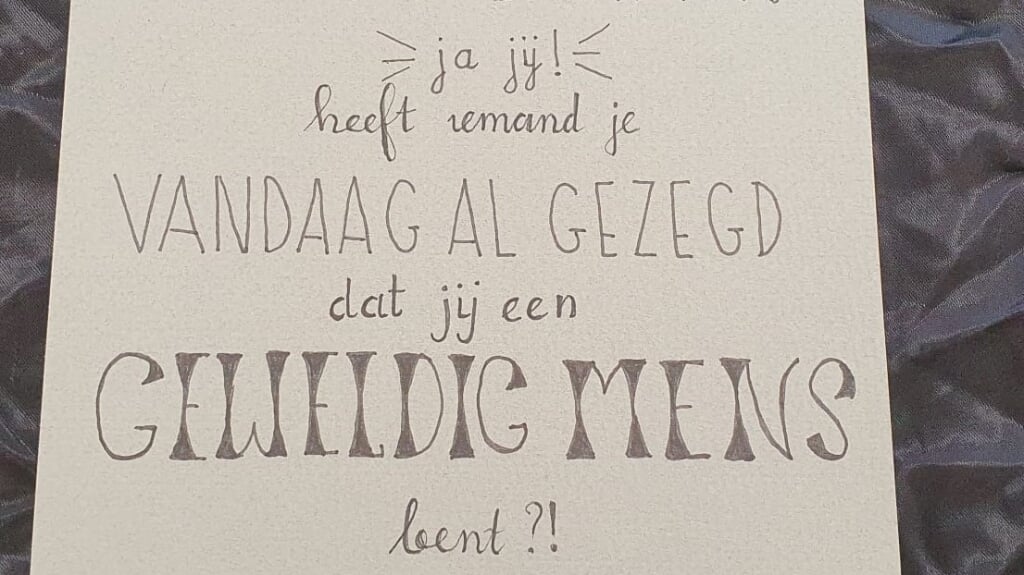 ja jij!
heeft iemand je
VANDAAG AL GEZEGD
dat jij een
GEWELDIG MENS
bent?!